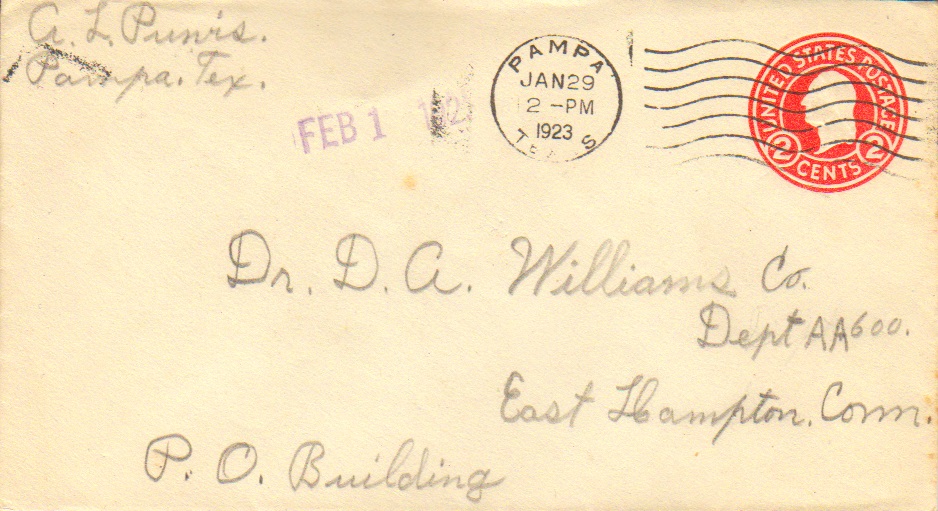 A. L. Purvis.
Pampa. Tex.
FEB 1 192
PAMPA
JAN 29
2-PM
1923
TEXAS
UNITED STATES POSTAGE
2 CENTS 2
Dr. D. A. Williams Co.
Dept AA600.
East Hampton. Conn.
P. O. Building